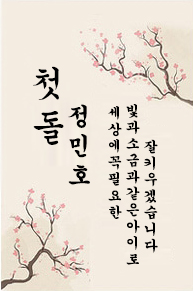 첫돌
정민호
세상에꼭필요한
빛과소금과같은아이로
잘키우겠습니다